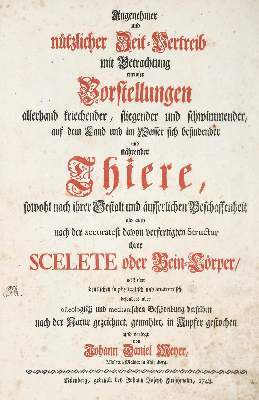 Angenehmer
und
nützlicher Zeit-Vertreib
mit Betrachtung
curioser
Vorstellungen
allerhand kriechender, fliegender und schwimmender,
auf dem Land und im Wasser sich befindender
und
nährender
Thiere,
sowohl nach ihrer Gestalt und äusserlichen Beschaffenheit
als auch
nach der accuratest davon verfertigten Structur
ihrer
SCELETE oder Bein-Cörper,
nebst einer
deutlichen so physicalisch und anatomisch
besonders aber
osteologisch und mechanischen Beschreibung derselben
nach der Natur gezeichnet, gemahlet, in Kupfer gestochen
und verlegt
von
Johann Daniel Meyer,
Miniatur-Mahler in Nürnberg.
Nürnberg, gedruckt bey Johann Joseph Fleischmann, 1748.